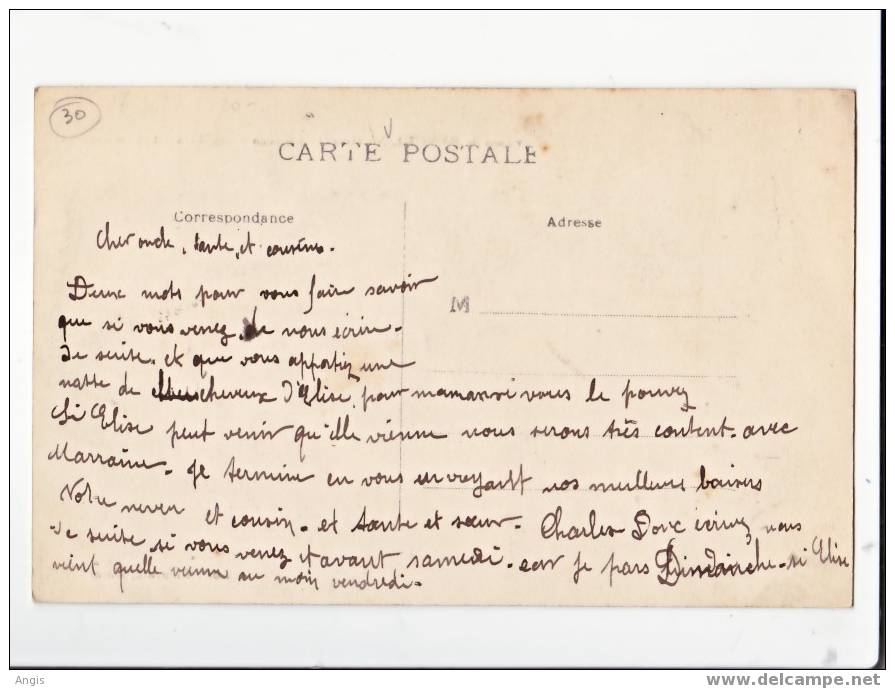 30
CARTE POSTALE
Correspondance
Adresse
Cher oncle, tante, et cousins.
Deux mots pour vous faire savoir
que si vous venez de nous écrire
de suite. et que vous apportiez une
natte de cheveux d'Elise pour maman si vous le pouvez
Si Elise peut venir qu'elle vienne nous serons très content. avec
Marraine. Je termine en vous envoyant nos meilleurs baisers
Votre neveu et cousin. et tante et sœur. Charles Donc écrivez nous
de suite si vous venez et avant samedi. car je pars Dimanche. si Elise
vient quelle vienne au moin vendredi.
M
Angis
www.delcampe.net